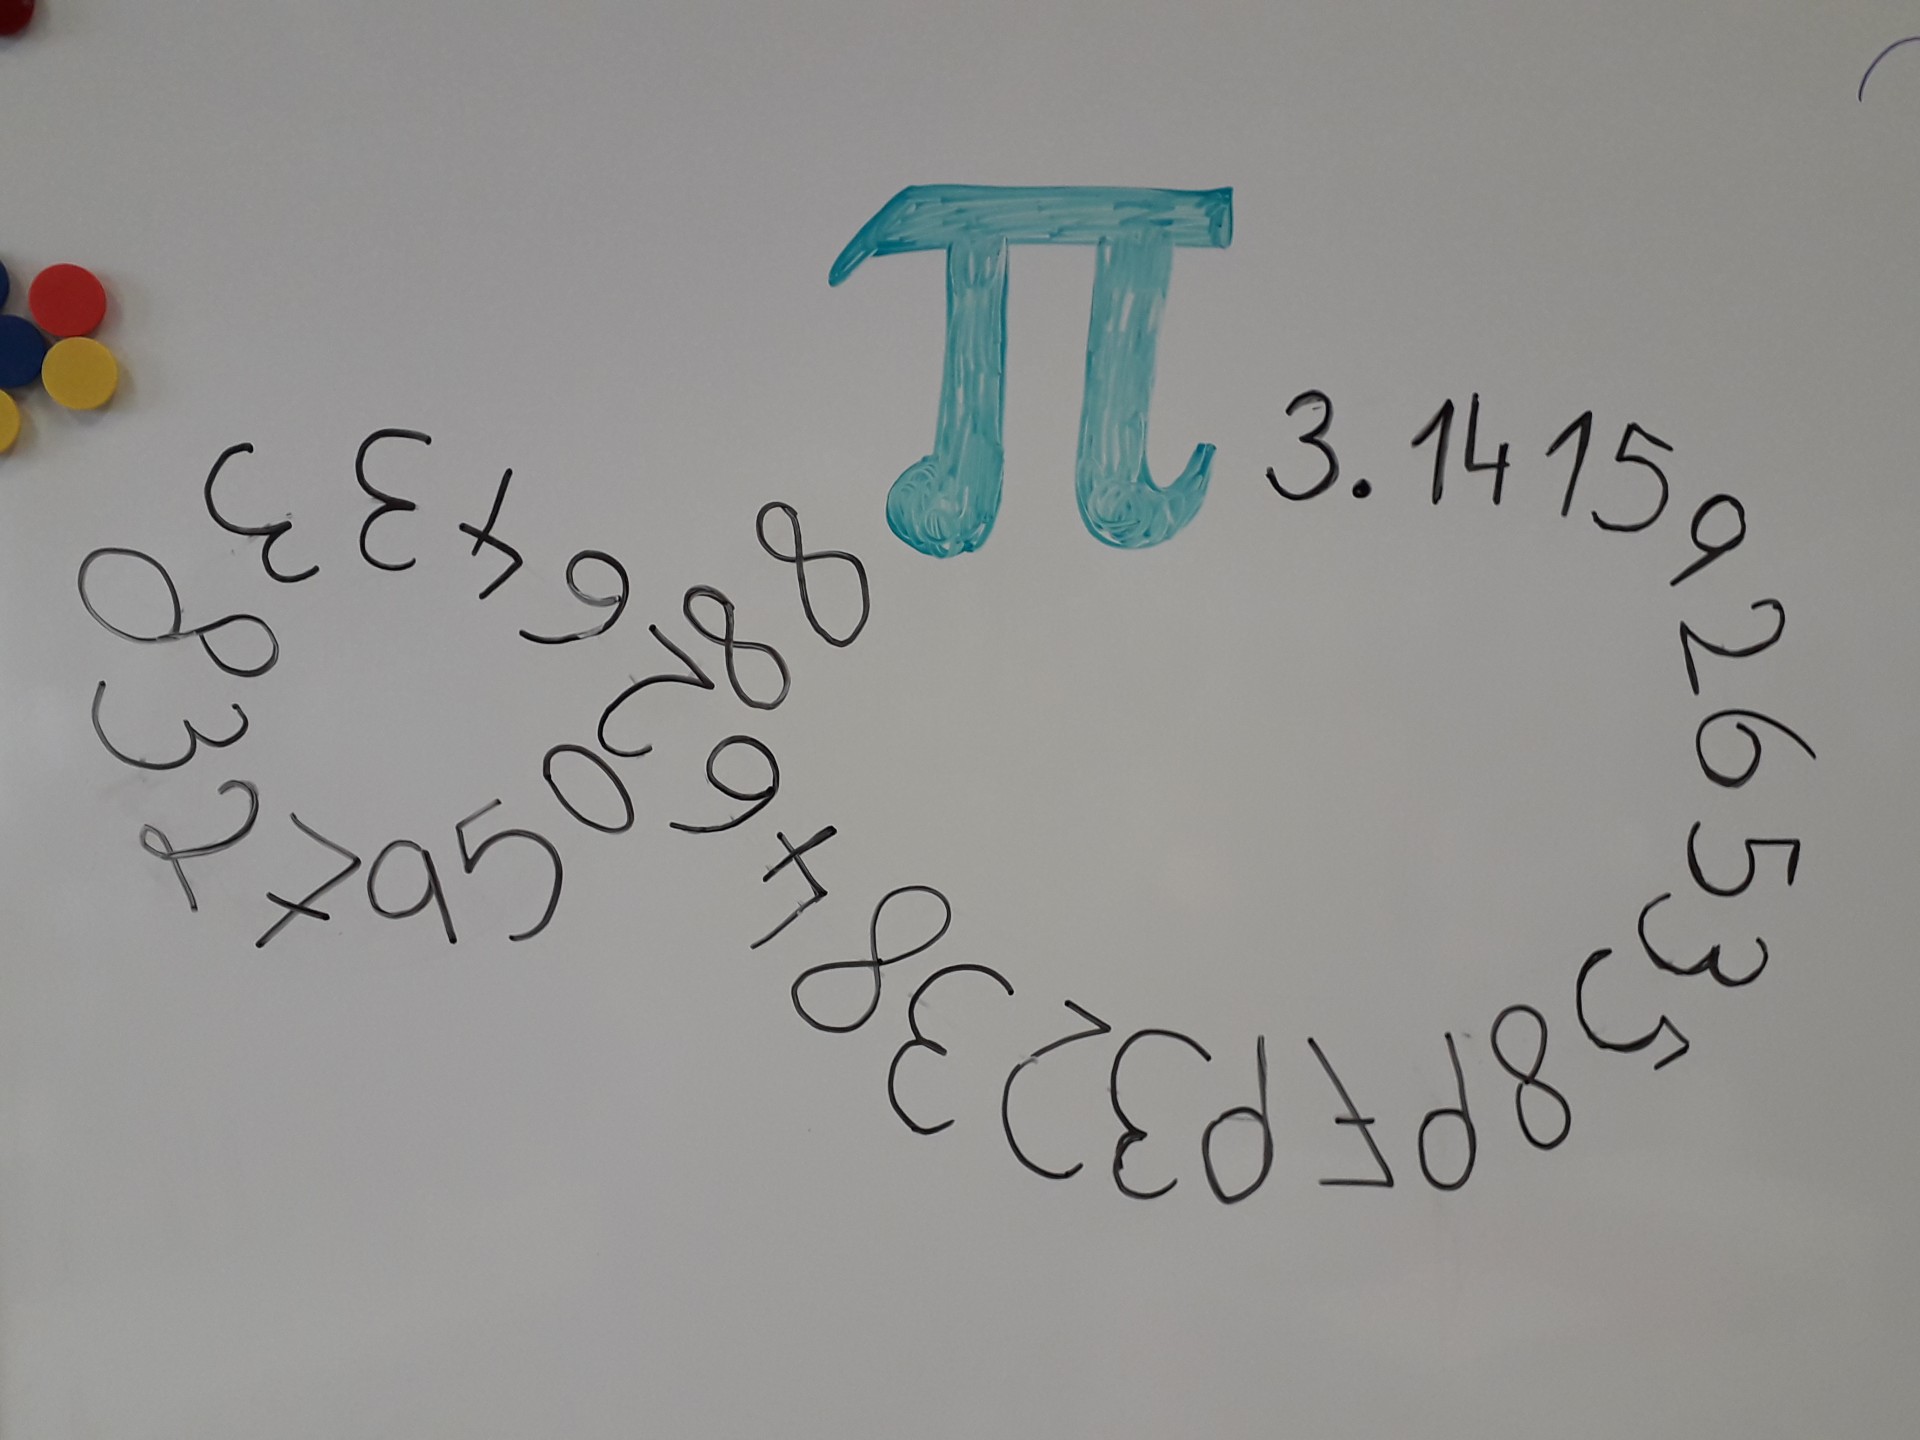 π
3.14159265358979323846264338327950288